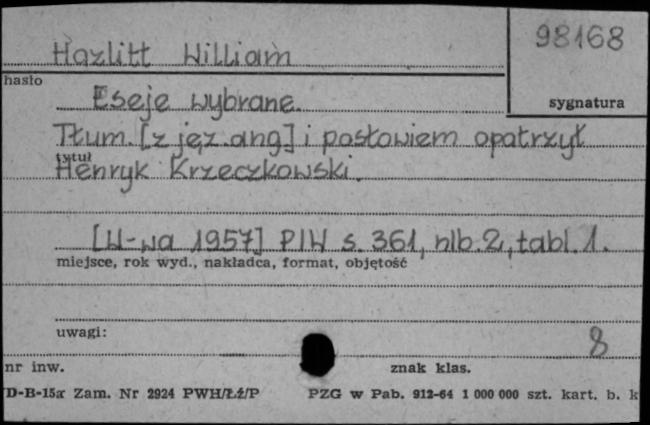 Hazlitt William
98168
hasło
Eseje wybrane.
sygnatura
Tłum. [z jęz. ang] i posłowiem opatrzył
tytuł
Henryk Krzeczkowski.
[W-wa 1957] PIW s. 361, nlb. 2, tabl. 1.
miejsce, rok wyd., nakładca, format, objętość
uwagi:
8
nr inw.
znak klas.
D-B-15a Zam. Nr 2924 PWH/Łź/P
PZG w Pab. 912-64 1 000 000 szt. kart. b. k